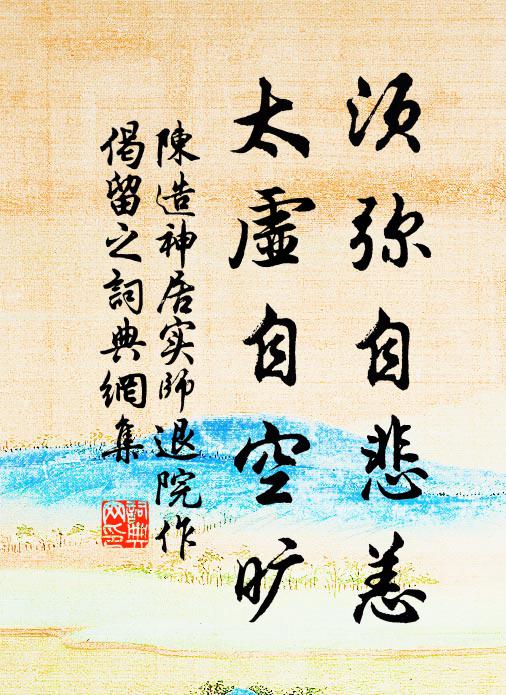 须弥自悲恙
太虚自空旷
陳造神居实師退院作
偈留之詞典網集
詞典网印